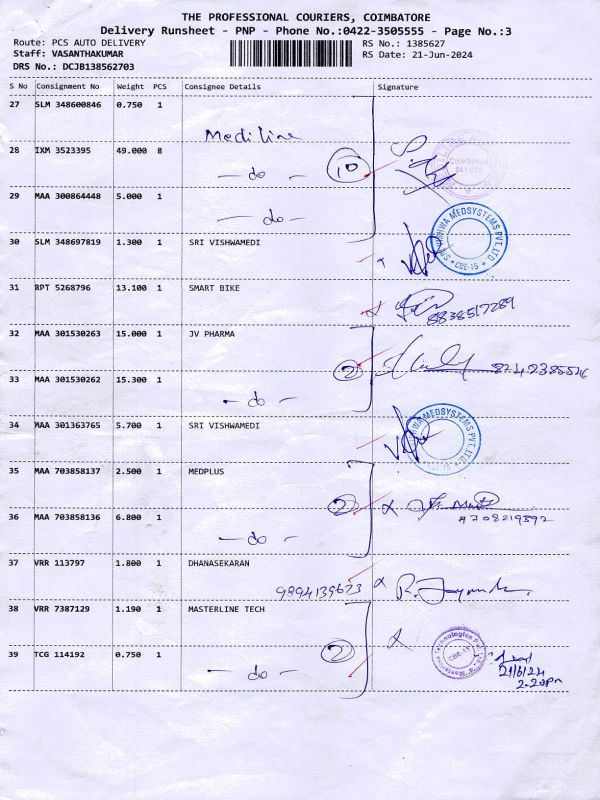 THE PROFESSIONAL COURIERS, COIMBATORE
Delivery Runsheet - PNP - Phone No.:0422-3505555 - Page No.:3
Route: PCS AUTO DELIVERY RS No.: 1385627
Staff: VASANTHAKUMAR RS Date: 21-Jun-2024
DRS No.: DCJB138562703
S No Consignment No Weight PCS Consignee Details Signature
27 SLM 348600846 0.750 1
Mediline
28 IXM 3523395 49.000 8
- do - 10
29 MAA 300864448 5.000 1
- do -
30 SLM 348697819 1.300 1 SRI VISHWAMEDI
MEDSYSTEMS PVT. LTD
CBE-15
31 RPT 5268796 13.100 1 SMART BIKE
8838517289
32 MAA 301530263 15.000 1 JV PHARMA
2
33 MAA 301530262 15.300 1
- do -
34 MAA 301363765 5.700 1 SRI VISHWAMEDI
WAMEDSYSTEMS PVT. LTD
CBE-15
35 MAA 703858137 2.500 1 MEDPLUS
2
36 MAA 703858136 6.800 1
- do -
37 VRR 113797 1.800 1 DHANASEKARAN
9894139673
38 VRR 7387129 1.190 1 MASTERLINE TECH
2
CBE-15
39 TCG 114192 0.750 1
- do -
21/6/24
2.20pm